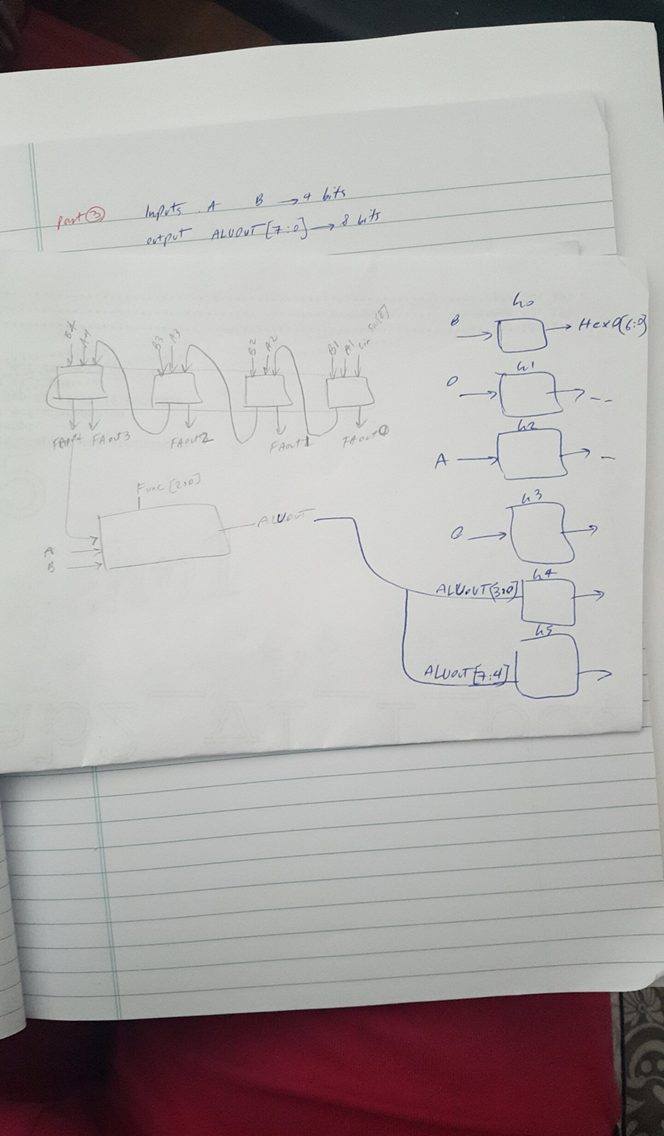 Part ③ Inputs A B → 4 bits
output ALUOUT [7:0] → 8 bits
B3 A3 B2 A2 B1 A1 Cin
FAout3 FAout2 FAout1 FAout0
Func [2:0]
A
B
ALUOUT
h0
B → Hex0[6:0]
h1
0 --
h2
A -
h3
0
h4
ALUOUT[3:0]
h5
ALUOUT[7:4]